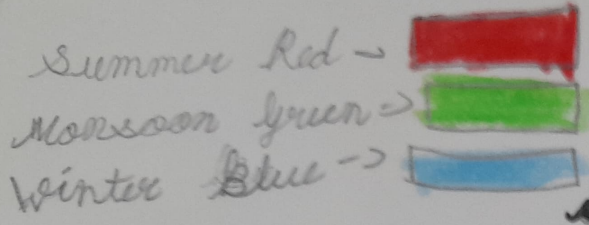 Summer Red →
Monsoon Green →
Winter Blue →